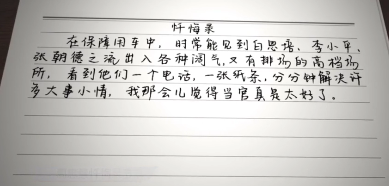 忏悔录
在保障用车中，时常能见到白恩培、李小平、
张朝德之流出入各种阔气，又有排场的高档场
所，看到他们一个电话，一张纸条，分分钟解决许
多大事小情，我那会儿觉得当官真是太好了。